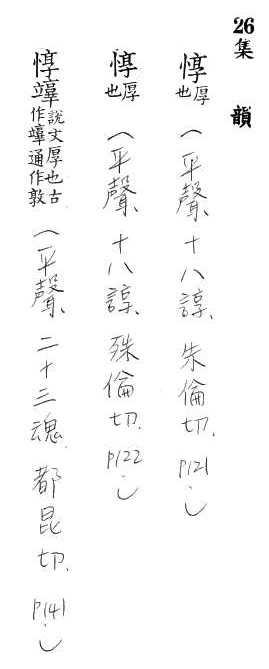 26集 韻
惇厚也(平聲、十八諄、朱倫切、P121。)
惇厚也(平聲、十八諄、殊倫切、P122。)
惇𥫎說文厚也古作𥫎通作敦(平聲、二十三魂、都昆切、P141。)